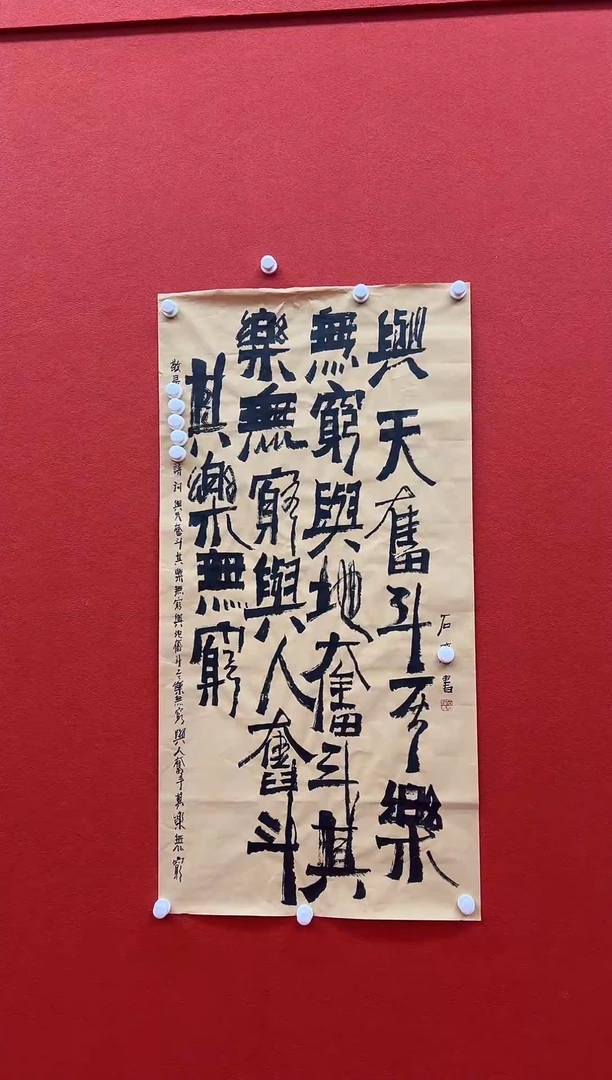 石 書
與天奮斗亓樂
無窮與地奮斗其
樂無窮與人奮斗
其樂無窮
敬 詩词 與天奮斗其樂無窮與地奮斗亓樂無窮 與人奮斗其樂無窮